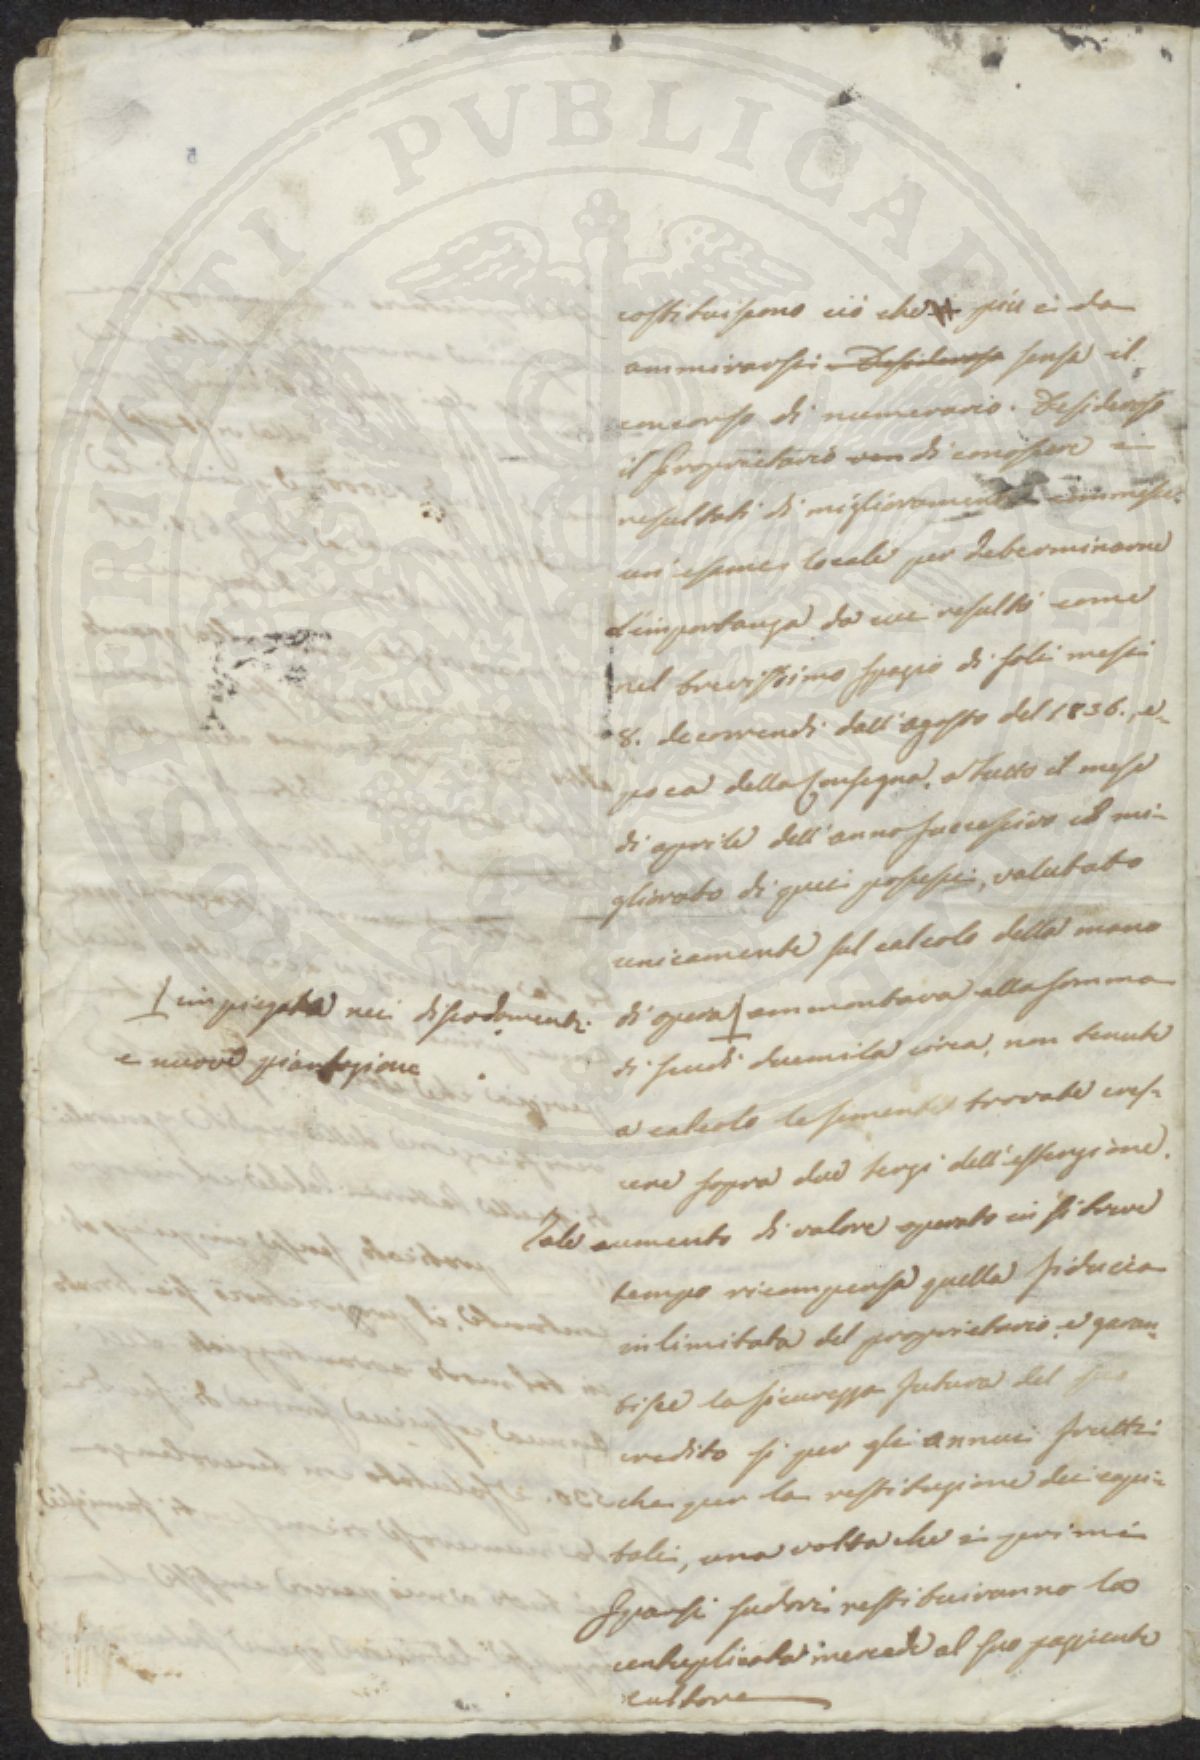 costituiscono ciò che più è da
ammirarsi Desideroso senza il
concorso di numerario. Desideroso
il Proprietario di conoscere i
resultati di miglioramento commise
un' esame locale per determinarne
l'importanza da cui resultò come
nel brevissimo spazio di soli mesi
8. decorrendi dall'agosto del 1836., e-
poca della Consegna, a tutto il mese
di aprile dell'anno successivo il mi-
gliorato di quei possessi, valutato
unicamente sul calcolo della mano
di opera ammontava alla somma
impiegata nei disodamenti
e nuove piantagione
di scudi duemila circa, non tenute
a calcolo le sementi trovate cres-
cere sopra due terzi dell'estenzione.
Tale aumento di valore operato in sì breve
tempo ricompensa quella fiducia
inlimitata del proprietario, e garan-
tisce la sicurezza futura del suo
credito sì per gli annui frutti
che per la restituzione dei capi-
tali, una volta che i primi
sparsi sudori restituiranno la
centuplicata mercede al suo paziente
cultore